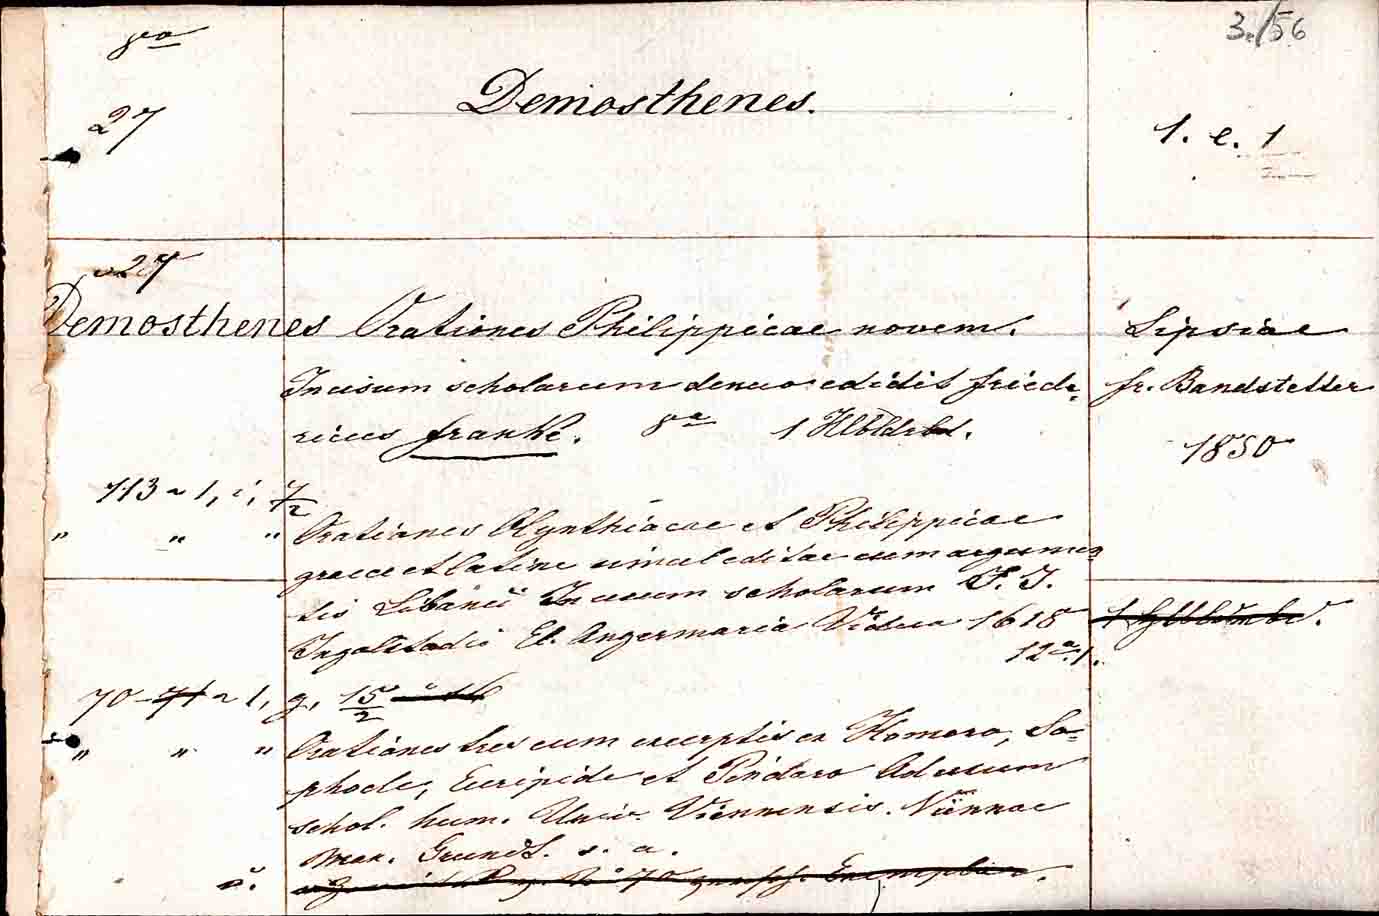 8vo
3./56
27
Demosthenes.
1. e. 1
27
Demosthenes Orationes Philippicae novem.
Lipsiae
In usum scholarum denuo edidit Fried=
fr. Bandstetter
ricus Franke. 8va 1 Hlbldrbd.
1850
113 ~ 1, i, 7/2
" " " Orationes Olynthiacae et Philippicae
graece et latine simul editae cum argumen
tis Libanii In usum scholarum S. J.
Ingolstadii El. Angermaria Vidua 1615
12a. 1.
70 - 71 ~ 1, g, 15/2
" " " Orationes tres cum excerptis ex Homero, So=
phocle, Euripide et Pindaro Ad usum
schol. hum. Univ. Viennensis. Viennae
Max. Grundt. s. a.
Exemplar.